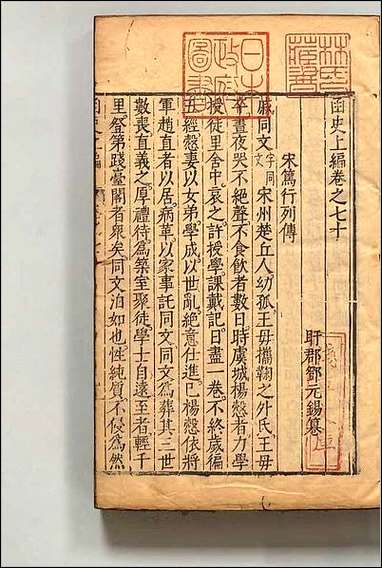 函史上編卷之七十
盱郡鄧元錫纂
宋篤行列傳
戚同文字同文宋州楚丘人幼孤王毋攜鞠之外氏王毋
卒晝夜哭不絕聲不食飲者數日時虞城楊慤者力學
授徒里舍中哀之許授學課戴記日盡一卷不終歲徧
五經慤妻以女弟學成以世亂絕意仕進楊慤依將
軍趙直者以居病革以家事託同文同文為葬其三世
數喪直義之厚禮待為築室聚徒學士自遠至者輕千
里登第踐臺閣者衆矣同文泊如也性純質不侵為然
日本
政府
圖書
林氏
藏書